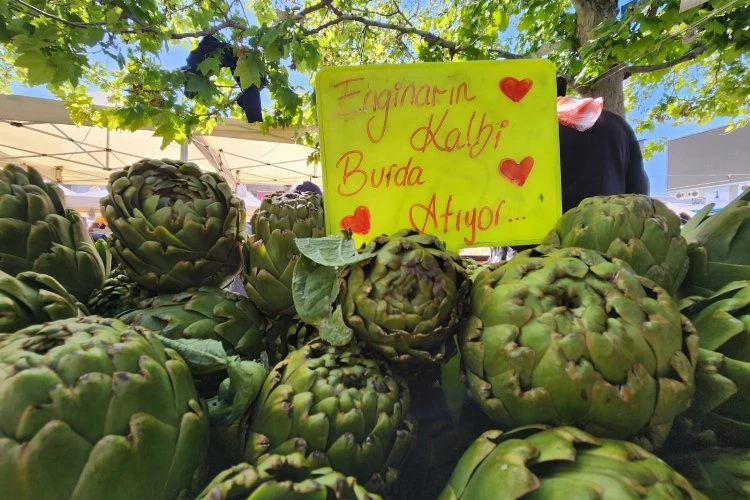 Enginarın
Kalbi
Burda
Atıyor...